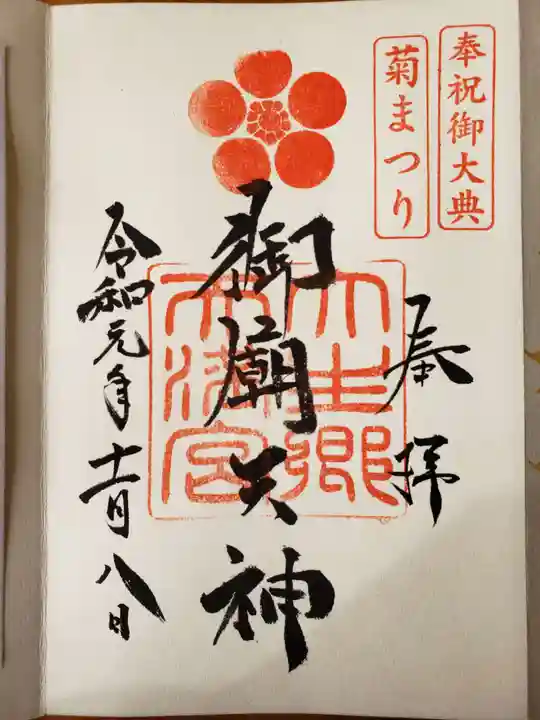 奉祝御大典
菊まつり
奉拝
御廟天神
大生郷
天満宮
令和元年十一月八日